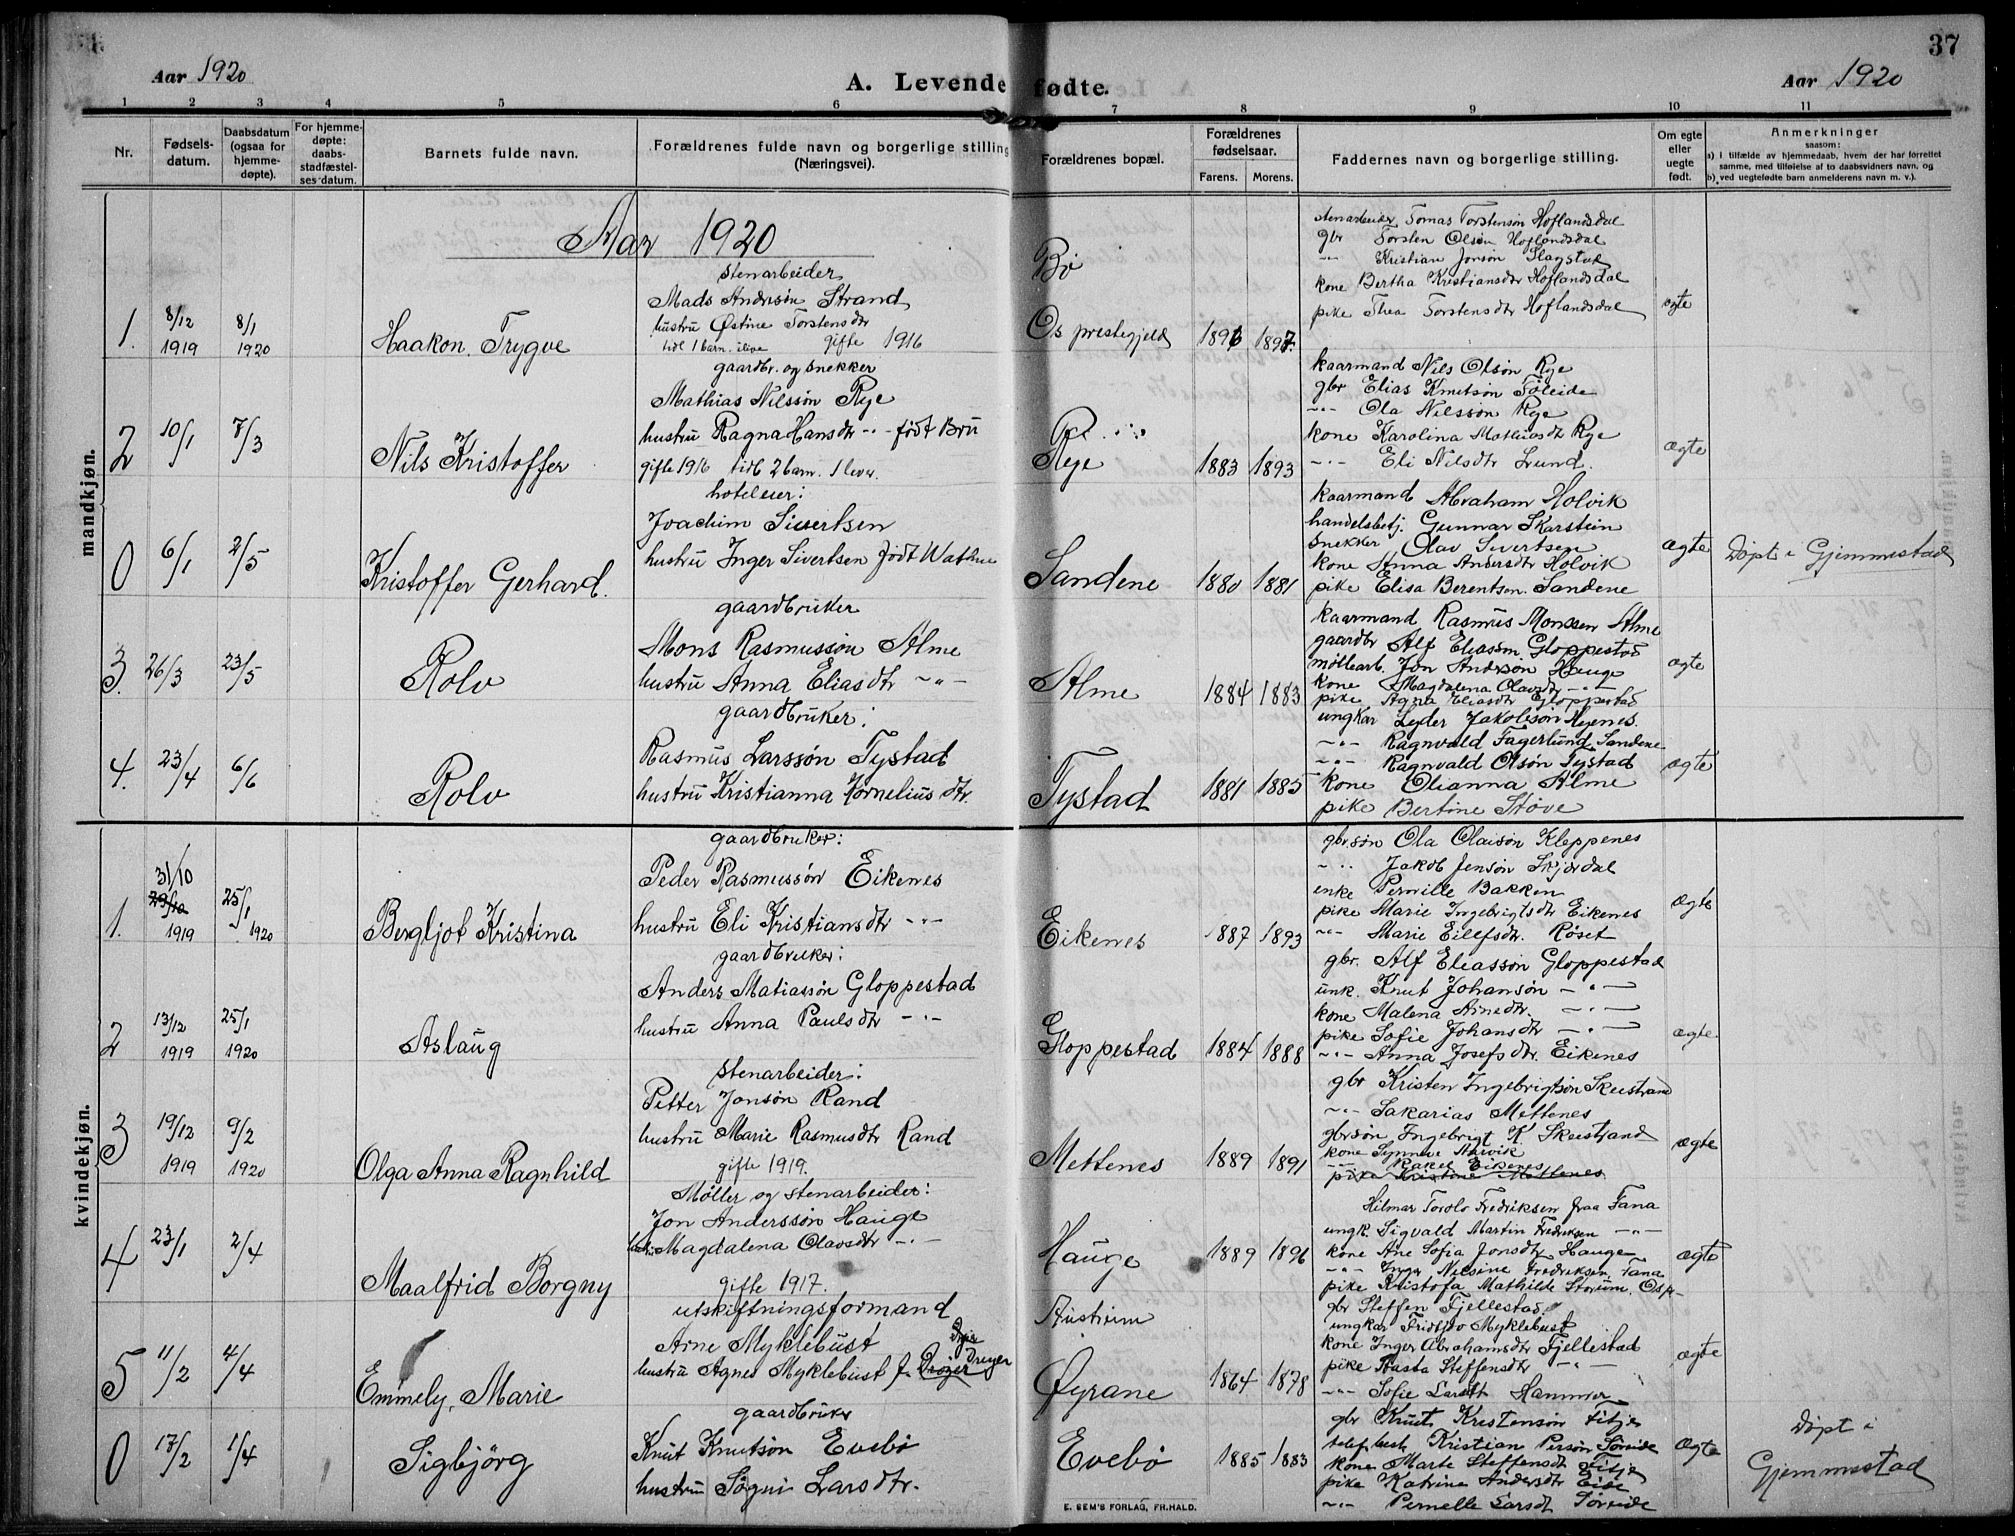 37
Aar 1920
A. Levende fødte.
Aar 1920
1 2 3 4 5 6 7 8 9 10 11
Nr.
Fødsels-
datum.
Daabsdatum
(ogsaa for
hjemme-
døpte).
For hjemme-
døpte:
daabs-
stadfæstel-
ses-datum.
Barnets fulde navn.
Forældrenes fulde navn og borgerlige stilling
(Næringsvei).
Forældrenes bopæl.
Forældrenes
fødselsaar.
Farens. Morens.
Faddernes navn og borgerlige stilling.
Om egte
eller
uegte
født.
Anmerkninger
saasom:
a) i tilfælde av hjemmedaab, hvem der har forrettet
samme, med tilføielse af to daabsvidners navn, og
b) ved uegtefødte barn anmelderens navn m. v.).
Aar 1920
mandkjøn.
1.
8/12
1919
8/1
1920
Haakon Trygve
stenarbeider
Mads Anderson Strand
hustru Østine Torstensdtr
tidl 1 barn. ilive gifte 1916
Bø
Os prestegjeld
1897.
stenarbeider Tomas Torstenson Hoflandsdal
gbr Torsten Olsøn Hoflandsdal
-"- Kristian Jonsøn Slagstad
kone Bertha Kristiansdtr Hoflandsdal
pike Thea Torstensdtr Hoflandsdal
ægte
2
10/1
7/3
Nils Kristoffer
gaardbr. og snekker
Mathias Nilssøn Rye
hustru Ragna Hansdtr -"- født Bru
gifte 1916 tidl 2 barn. 1 lever.
Rye
1883 1893
kaarmand Nils Olsøn Rye
gbr Elias Knutsøn Føleide
-"- Ola Nilssøn Rye
kone Karolina Mathiasdtr Rye
-"- Eli Nilsdtr Lund.
ægte
0
6/1
2/5
Kristoffer Gerhard.
hoteleier:
Joachim Sivertsen
hustru Inger Sivertsen født Wathne
Sandene
1880 1881
kaarmand Abraham Holvik
handelsbetj. Gunnar Skarstein
snekker Olav Sivertsen
kone Anna Andersdtr Holvik
pike Elisa Berentsen. Sandene
ægte
Døpt i Gjemmestad
3.
26/3
23/5
Rolv
gaardbruker
Mons Rasmussøn Alme
hustru Anna Eliasdtr -"-
Alme
1884 1883
kaarmand Rasmus Monssen Alme
gaardbr Alf Eliassøn Gloppestad
møllearb. Jon Andersøn Hauge
kone Magdalena Olavsdtr -"-
pike Agnta Eliasdtr Gloppestad
ægte
4.
23/4
6/6
Rolv
gaardbruker:
Rasmus Larssøn Tystad
hustru Kristianna Kornelius dtr.
Tystad
1881 1885
ungkar Leder Jakobson Hyenes.
-"- Ragnvald Fagerlund Sandene
-"- Ragnvald Olsøn Tystad
kone Olianna Alme
pike Bertine Støve
ægte
kvindekjøn.
1.
31/10
29/10
1919
25/1
1920
Bergljot Kristina
gaardbruker:
Peder Rasmussøn Eikenes
hustru Eli Kristiansdtr -"-
Eikenes
1887 1893
gbr.søn Ola Olaisøn Kleppenes
-"- Jakob Jensøn Skjerdal
enke Pernille Bakken
pike Marie Ingebrigtsdtr Eikenes
-"- Marie Eilefsdtr. Røset
ægte
2
13/12
1919
25/1
1920
Aslaug
gaardbruker:
Anders Matiassøn Gloppestad
hustru Anna Paulsdtr -"-
Gloppestad
1884 1888
gbr. Alf Eliassøn Gloppestad
unk. Knut Johansøn -"-
kone Malena Arnedtr. -"-
pike Sofie Johansdtr -"-
-"- Anna Josefsdtr. Eikenes
ægte
3
19/12
1919
9/2
1920
Olga Anna Ragnhild
stenarbeider:
Petter Jonsøn Rand
hustru Marie Rasmusdtr Rand
gifte 1919.
Mettenes
1889 1891
gbr Kristen Ingebrigtsøn Skeistrand
-"- Sakarias Mettenes
gbrsøn Ingebrigt K. Skeistrand
kone Synneve Aarvik
-"- Rakel Eikenes
pike Kristine Mettenes
ægte
4
23/1
2/4
Maalfrid Borgny
Møller og stenarbeider:
Jon Anderssøn Hauge
hustr. Magdalena Olavsdtr -"-
gifte 1917.
Hauge
1889 1896
Hilmar Torolo Fredriksen fraa Fana
ungk. Sigvald Martin Fredriksen -"-
kone Ane Sofia Jonsdtr Hauge
-"- Inga Nilsine Fredriksen Fana
pike Kristofa Mathilde Storum. Osp-
ægte
5
11/2
4/4
Emmely, Marie
utskiftningsformand
Arne Myklebust
hustru Agnes Myklebust f. Drøjer Dreyer
Austreim
Øyrane
1864 1878
gbr Steffen Fjellestad
ungkar Fridtjov Myklebust
kone Inger Abrahamsdtr Fjellestad
pike Basta Steffensdtr -"-
-"- Sofie Larsdtr Hammer
ægte
0
17/2
1/4
Sigbjörg
gaardbruker
Knut Knutsøn Evebø
hustru Søgni Larsdtr.
Evebø
1885 1883
gbr Knut Kristensøn Fitje
telef.besth Kristian Persøn Søreide
kone Marte Steffensdtr Fitje
pike Katrine Andersdtr Eide
-"- Pernelle Larsdt Søreide
ægte
Døpt i
Gjemmestad
E. SEM'S FORLAG, FR.HALD.